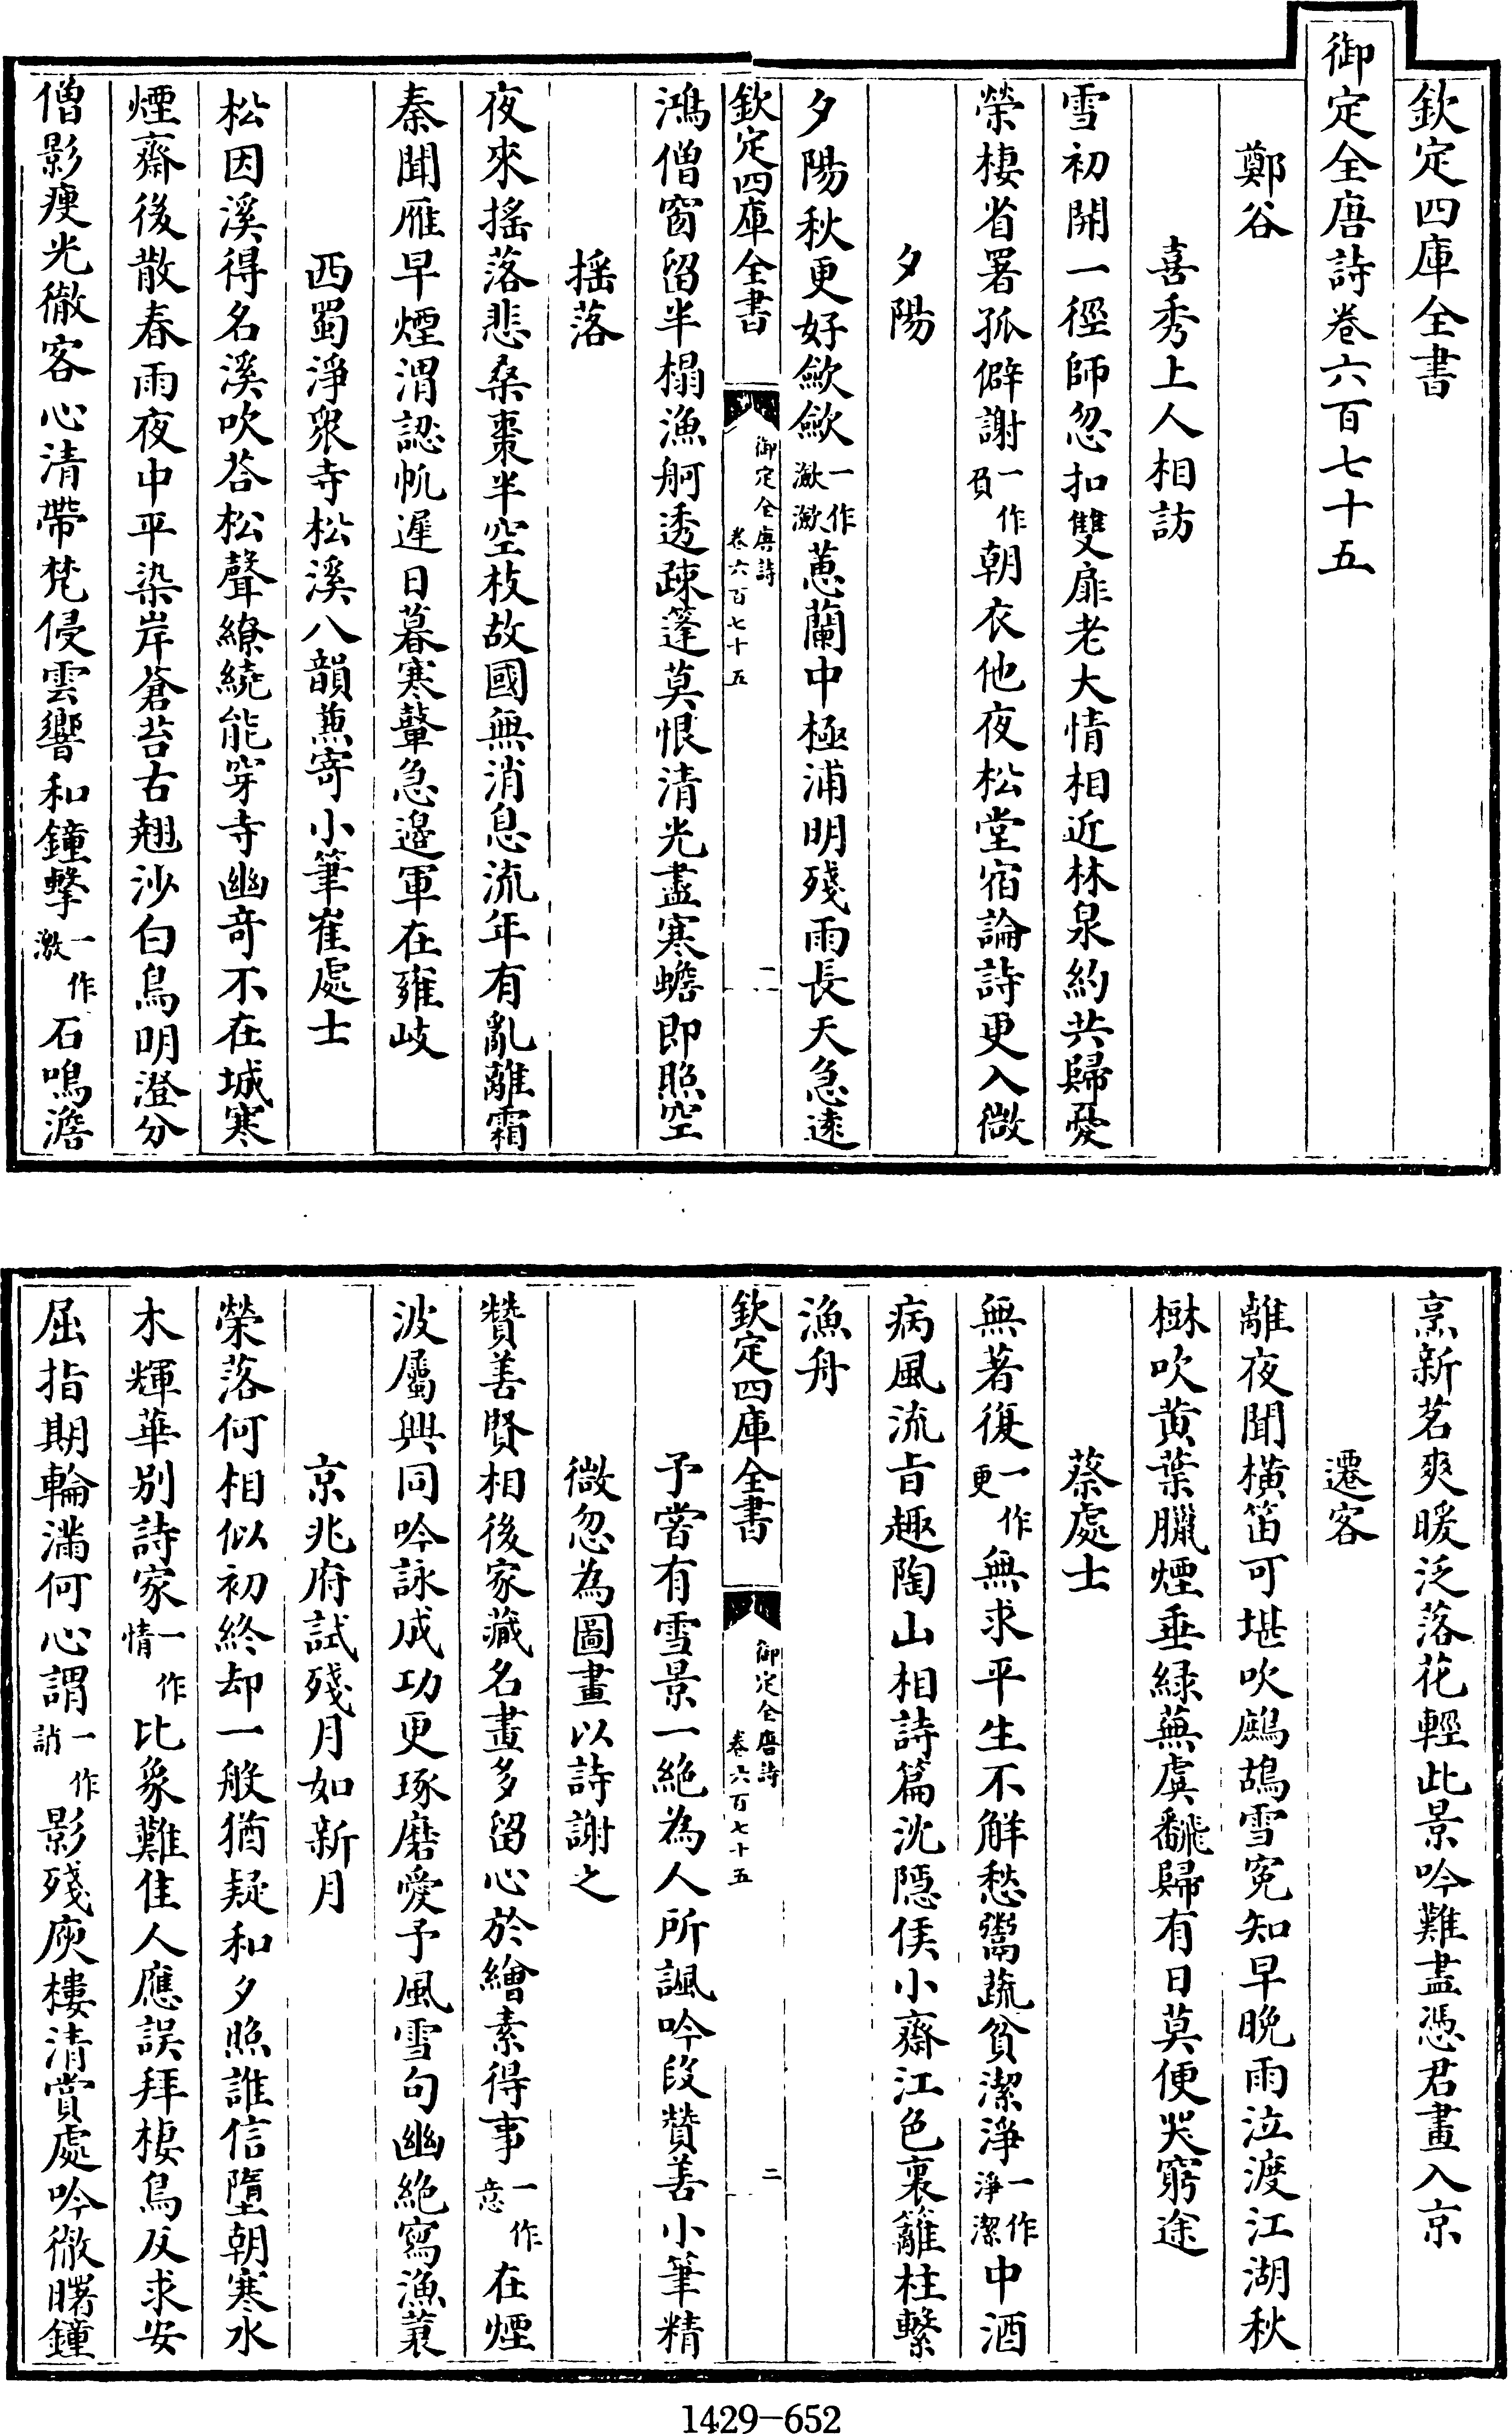 欽定四庫全書
御定全唐詩卷六百七十五
鄭谷
喜秀上人相訪
雪初開一徑師忽扣雙扉老大情相近林泉約共歸憂
榮棲省署孤僻謝一作負朝衣他夜松堂宿論詩更入微
夕陽
夕陽秋更好歛歛一作瀲瀲蕙蘭中極浦明殘雨長天急遠
欽定四庫全書
御定全唐詩
卷六百七十五
一
鴻僧窗留半榻漁舸透疎篷莫恨清光盡寒蟾即照空
揺落
夜來揺落悲桑棗半空枝故國無消息流年有亂離霜
秦聞雁早煙渭認帆遲日暮寒鼙急邉軍在雍岐
西蜀淨衆寺松溪八韻兼寄小筆崔處士
松因溪得名溪吹荅松聲繚繞能穿寺幽奇不在城寒
煙齋後散春雨夜中平染岸蒼苔古翹沙白鳥明澄分
僧影瘦光徹客心清帶梵侵雲響和鐘擊一作激石鳴澹
烹新茗爽暖泛落花輕此景吟難盡憑君畫入京
遷客
離夜聞橫笛可堪吹鷓鴣雪寃知早晚雨泣渡江湖秋
樹吹黄葉臘煙垂緑蕪虞翻歸有日莫便哭窮途
蔡處士
無著復一作更無求平生不解愁鬻蔬貧潔淨一作淨潔中酒
病風流旨趣陶山相詩篇沈隱侯小齋江色裏籬柱繫
漁舟
欽定四庫全書
御定全唐詩
卷六百七十五
二
予嘗有雪景一絶為人所諷吟段贊善小筆精
微忽為圖畫以詩謝之
贊善賢相後家藏名畫多留心於繪素得事一作意在煙
波屬興同吟詠成功更琢磨愛予風雪句幽絶寫漁蓑
京兆府試殘月如新月
榮落何相似初終却一般猶疑和夕照誰信墮朝寒水
木輝華别詩家一作情比象難佳人應誤拜棲鳥反求安
屈指期輪滿何心謂一作誚影殘庾樓清賞處吟徹曙鐘
1429-652